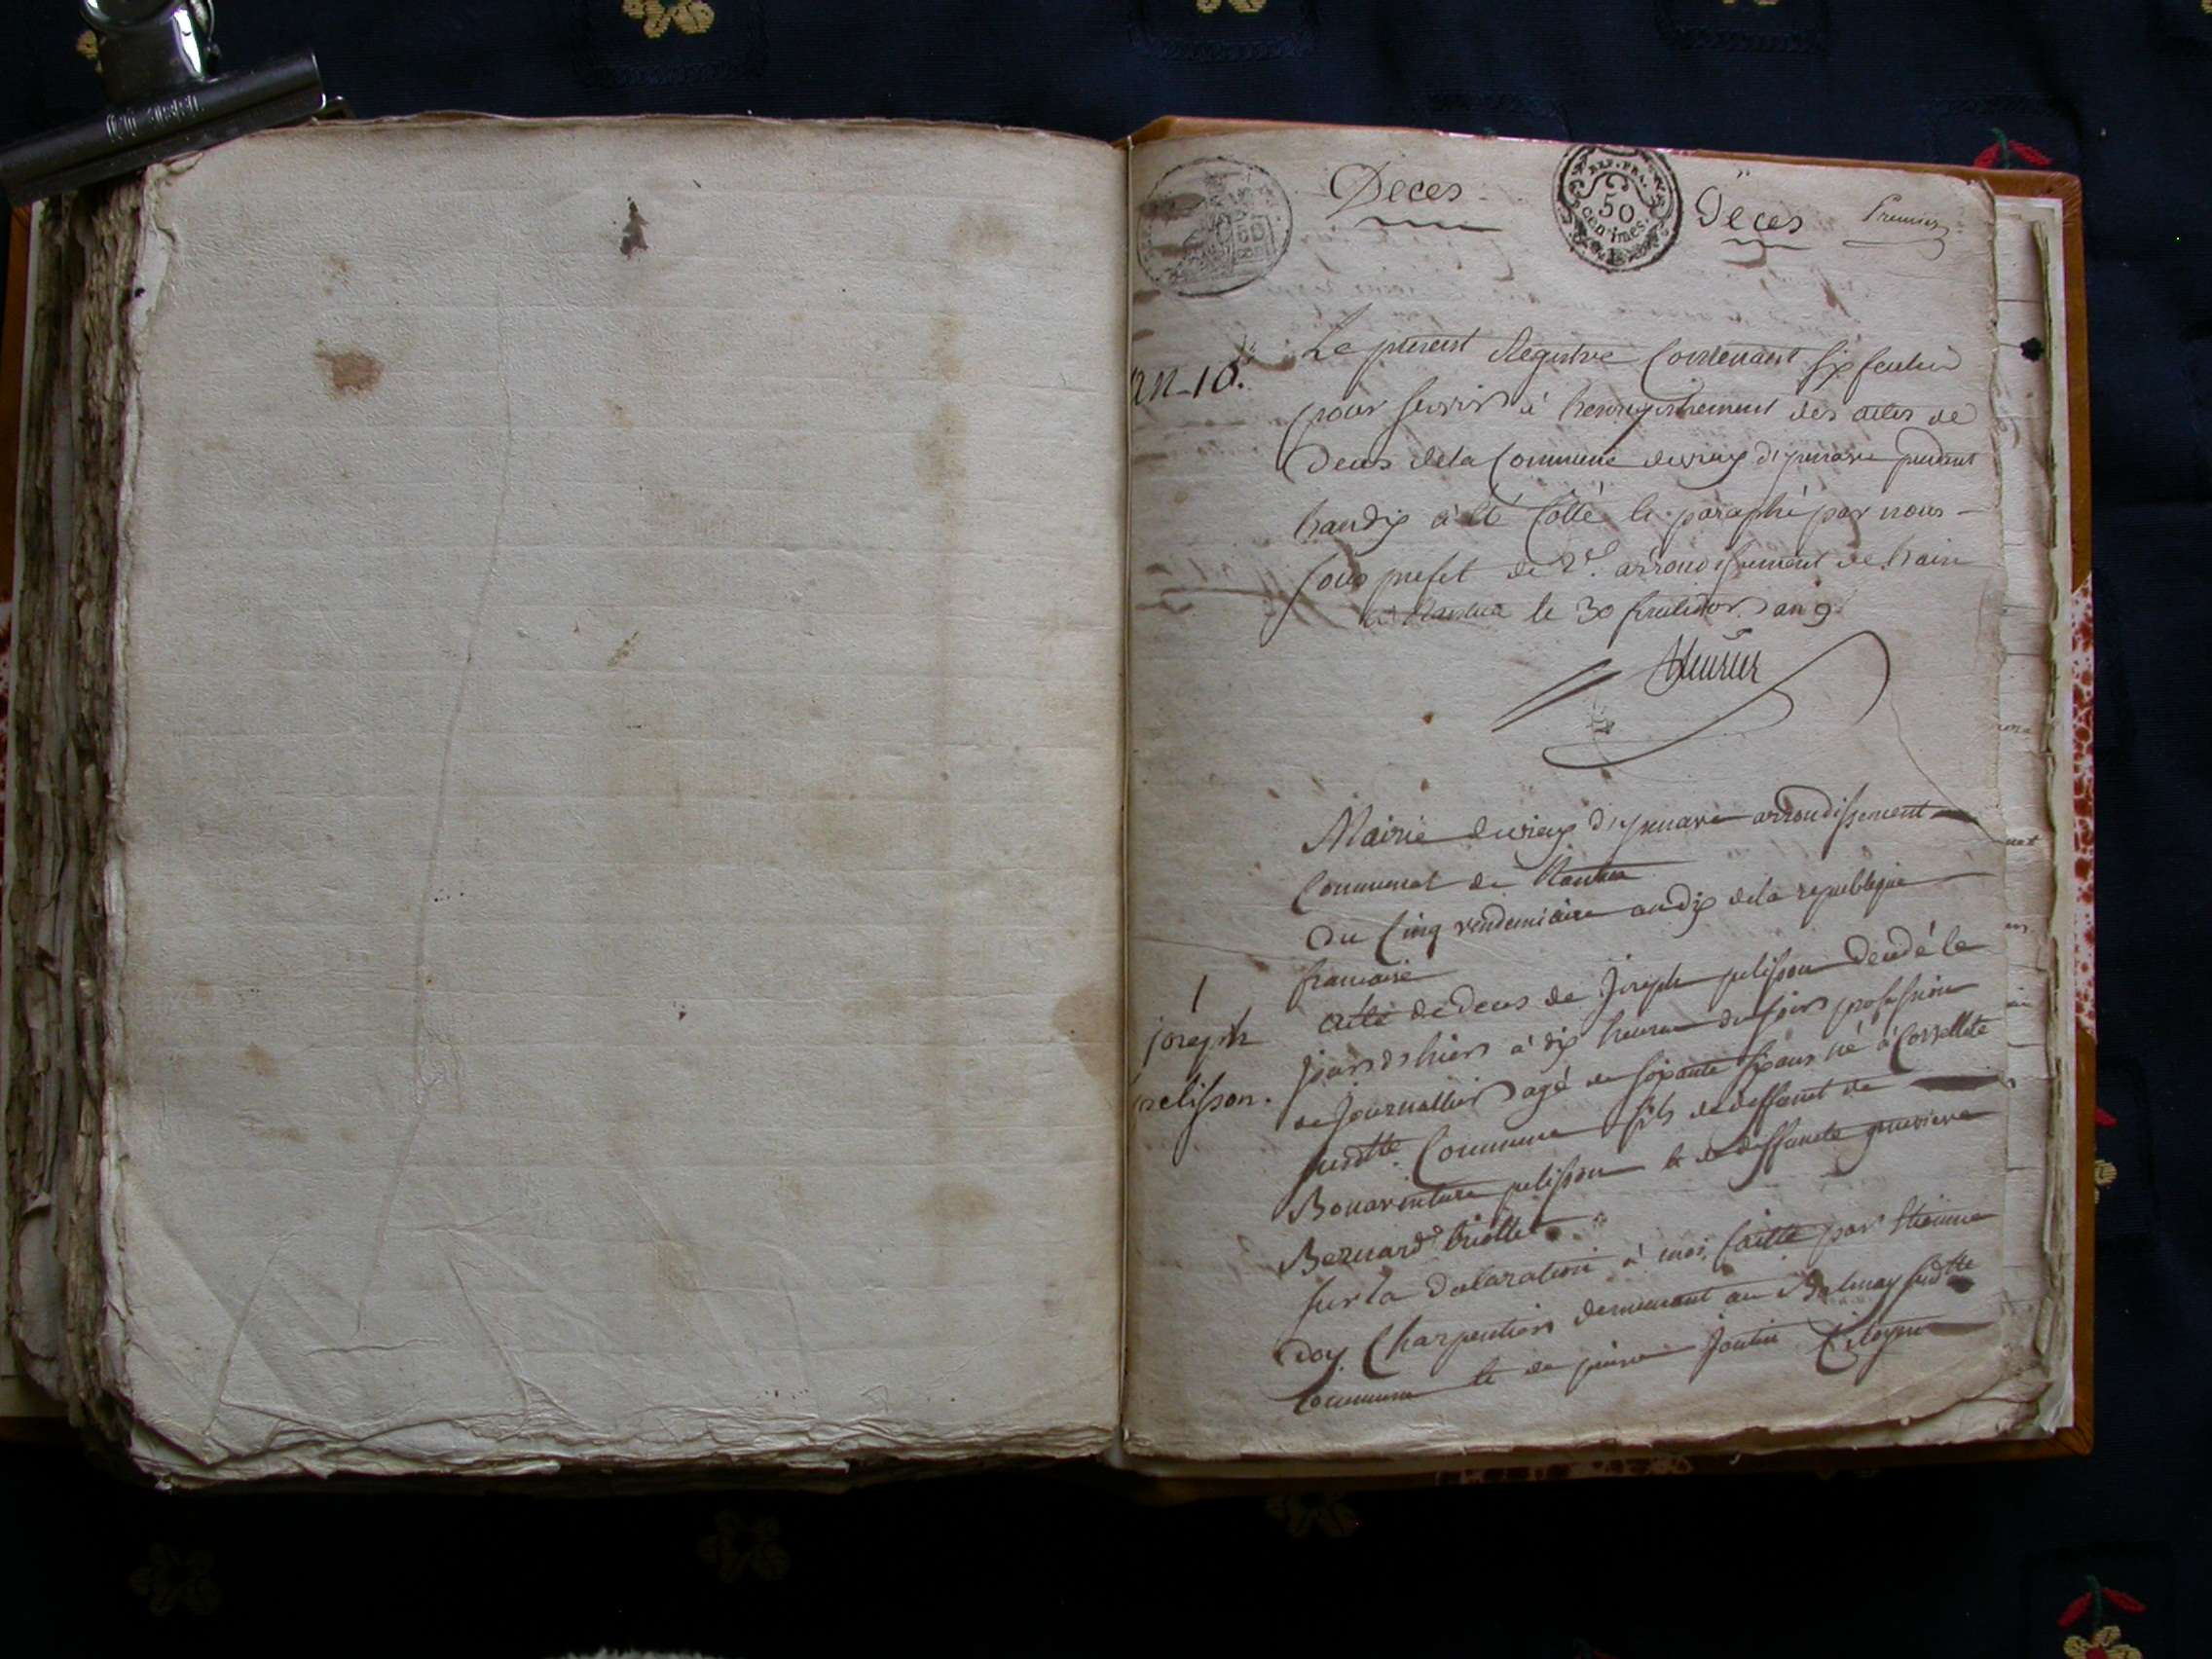 Décès
REP. FRA.
50
centimes.
Décès
Premier
an 10.
Le présent Registre Contenant six feulies
pour servir à lenregistrement des actes de
Deces dela Commune devieux dizenave pendant
landix à été Cotté et paraphé par nous
sous prefet du 2e. arrondissement de lain
a Nantua le 30 fructidor an 9
Mairie devieux dizenave arrondissement
Communal de Nantua
Du Cinq vendemiaire an dix dela republique
francaise
1
joseph
pelisson.
acte de deces de Joseph pelisson Decédé le
jours dhiers à dix heures du soirs profession
de Journallier agé de soixante six ans né à Corcellete
susdtte Commune fils de deffunt de
Bonaventure pelisson et de deffuncte
Bernard
sur la declaration à moi faitte par Etienne
doy Charpentiers demeurant au Balmay susdtte
Commune et de pierre Citoyen